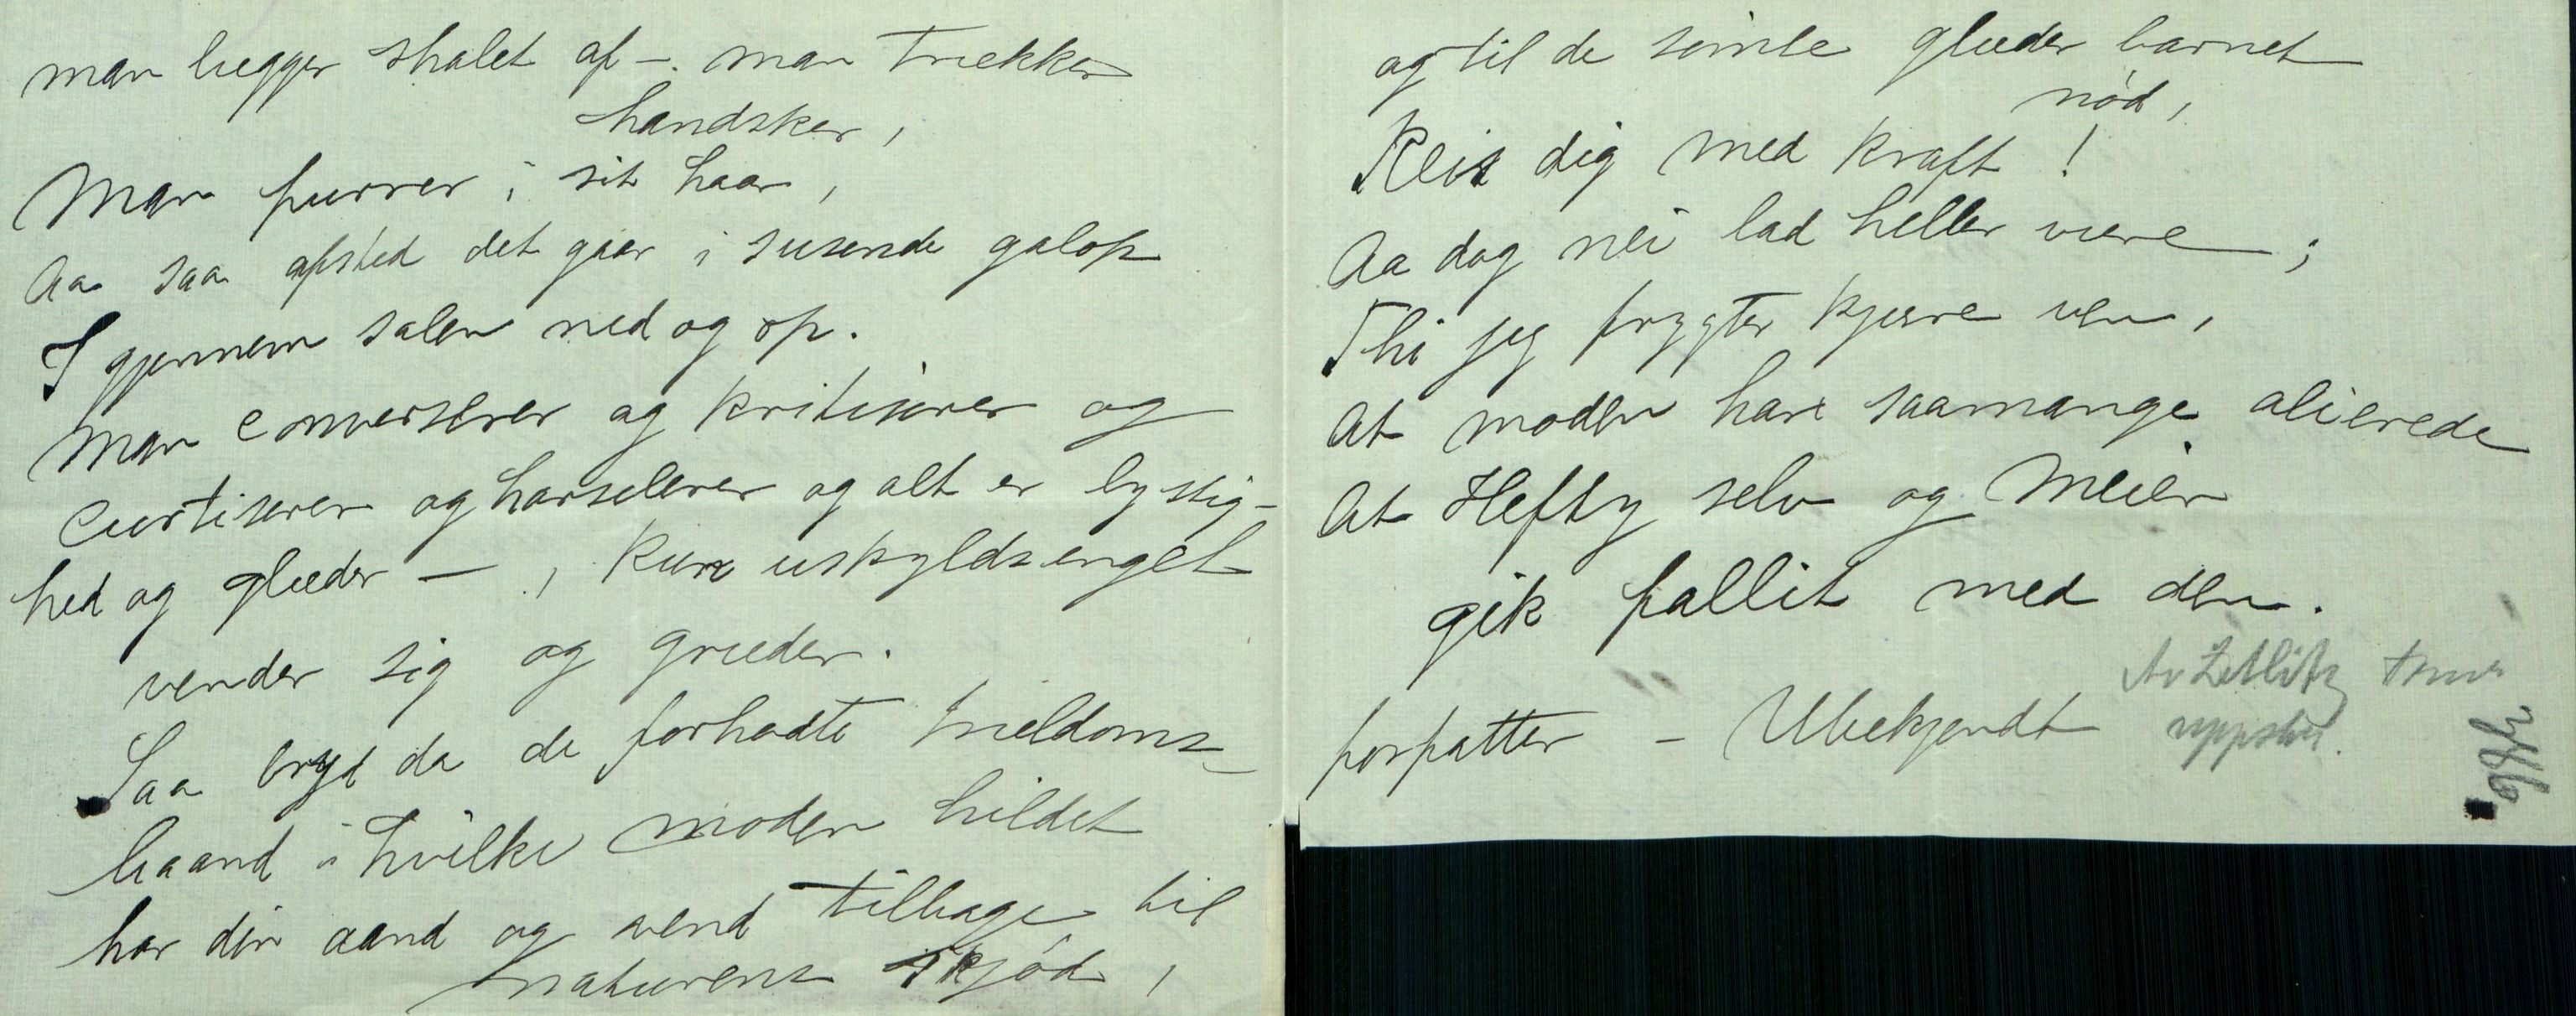 man lægger shalet af –. man trækker
handsker,
Man purrer i sit haar,
Aa saa afsted det gaar i susende galop
I gjennem salen ned og op.
Man converserer og kritiserer og
curtiserer og harselerer og alt er lystig-
hed og glæder – , kun uskyldsenglet
vender sig og græder.
Saa bryd da de forhadte trældoms-
baand i hvilke moden hildet
har din aand og vend tilbage til
naturens skjød,
og til de simle glæder barnet
nød,
Reis dig med kraft!
Aa dog nei lad heller være;
Thi jeg frygter kjære ven,
At moden have saamange alierede
At Hefty selv og Meier
gik fallit med den.
forfatter – Ubekjendt
Av Zetlitz